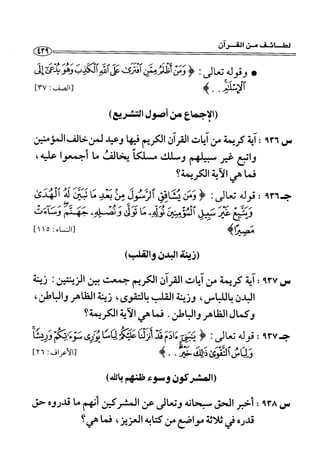 لطائف من القرآن
٤٣٩
• وقوله تعالى: ﴿ وَمَنْ أَظْلَمُ مِمَّنِ افْتَرَىٰ عَلَى اللَّهِ الْكَذِبَ وَهُوَ يُدْعَىٰ إِلَى
الْإِسْلَامِ ..﴾ [الصف: ٣٧]
(الإجماع من أصول التشريع)
س ٩٣٦ : آية كريمة من آيات القرآن الكريم فيها وعيد لمن خالف المؤمنين
واتبع غير سبيلهم وسلك مسلكاً يخالف ما أجمعوا عليه،
فما هي الآية الكريمة؟
جـ ٩٣٦ : قوله تعالى: ﴿ وَمَن يُشَاقِقِ الرَّسُولَ مِنْ بَعْدِ مَا تَبَيَّنَ لَهُ الْهُدَىٰ
وَيَتَّبِعْ غَيْرَ سَبِيلِ الْمُؤْمِنِينَ نُوَلِّهِ مَا تَوَلَّىٰ وَنُصْلِهِ جَهَنَّمَ وَسَاءَتْ
مَصِيرًا﴾ [النساء: ١١٥]
(زينة البدن والقلب)
س ٩٣٧ : آية كريمة من آيات القرآن الكريم جمعت بين الزينتين: زينة
البدن باللباس، وزينة القلب بالتقوى، زينة الظاهر والباطن،
وكمال الظاهر والباطن. فما هي الآية الكريمة؟
جـ ٩٣٧ : قوله تعالى: ﴿ يَا بَنِي آدَمَ قَدْ أَنزَلْنَا عَلَيْكُمْ لِبَاسًا يُوَارِي سَوْآتِكُمْ وَرِيشًا
وَلِبَاسُ التَّقْوَىٰ ذَٰلِكَ خَيْرٌ ..﴾ [الأعراف: ٢٦]
(المشركون وسوء ظنهم بالله)
س ٩٣٨ : أخبر الحق سبحانه وتعالى عن المشركين أنهم ما قدروه حق
قدره في ثلاثة مواضع من كتابه العزيز، فما هي؟